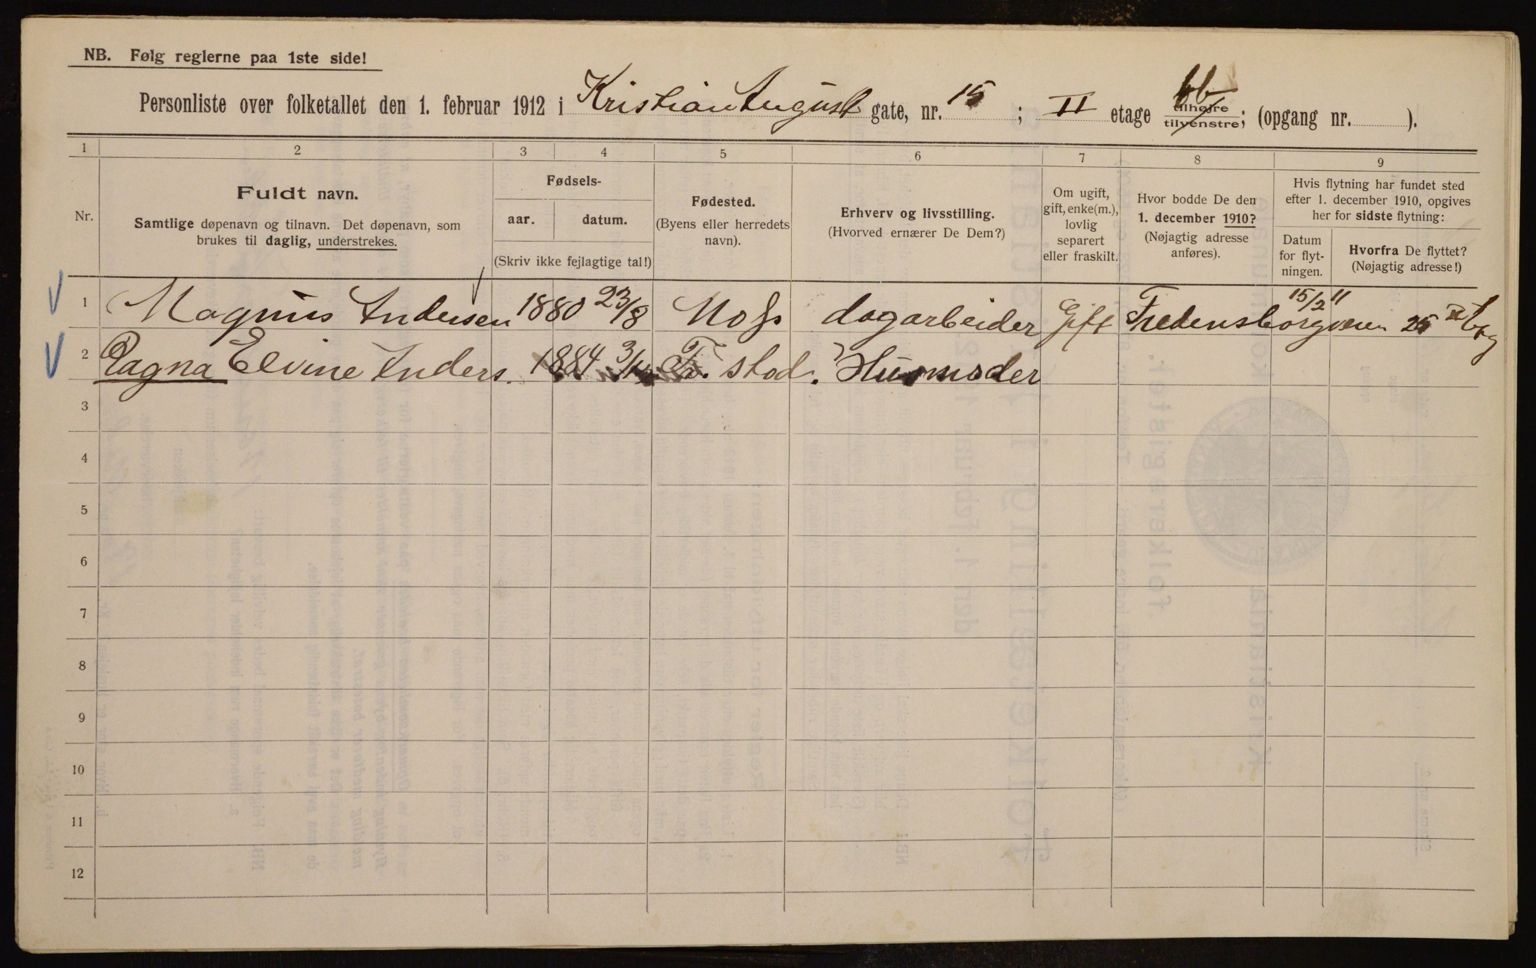 NB. Følg reglerne paa 1ste side!
Personliste over folketallet den 1. februar 1912 i Kristian August gate, nr. 15 ; II etage tilhøire tilvenstre; bb (opgang nr. ).
1 2 3 4 5 6 7 8 9
Nr.
Fuldt navn.
Samtlige døpenavn og tilnavn. Det døpenavn, som
brukes til daglig, understrekes.
Fødsels-
aar. datum.
(Skriv ikke fejlagtige tal!)
Fødested.
(Byens eller herredets
navn).
Erhverv og livsstilling.
(Hvorved ernærer De Dem?)
Om ugift,
gift, enke(m.),
lovlig
separert
eller fraskilt.
Hvor bodde De den
1. december 1910?
(Nøjagtig adresse
anføres).
Hvis flytning har fundet sted
efter 1. december 1910, opgives
her for sidste flytning:
Datum
for flyt-
ningen.
Hvorfra De flyttet?
(Nøjagtig adresse!)
1 Magnus Andersen 1880 23/8 Moss dagarbeider Gift Fredensborgveien 25 15/2 11
2 Ragna Elvine Anders. 1884 3/ Fr. stad. Husmoder
3
4
5
6
7
8
9
10
11
12